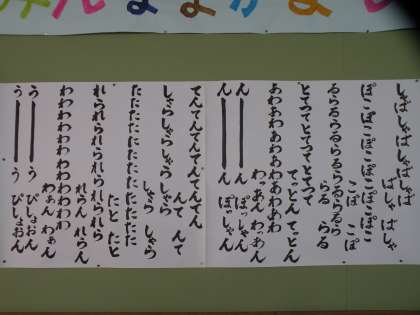 しゃばしゃばしゃば
ばしゃ ばしゃ
ぽこぽこぽこぽこぽこ
こぽ こぽ
るらるらるらるらるら
らる らる
とてつてとてつてとてつて
てっとん てっとん
あわあわあわあわあわあわ
わあん わあん
ん――ん ぽっしゃん
ん――ん ぽっしゃん
てんてんてんてんてんてん
んて んて
しゃらしゃらしゃらしゃら
しゃら しゃら
たたたたたたたたたた
たと たと
れられられられられら
れらん れらん
わわわわわわわわわわ
わぁん わぁん
う――う ぴしょおん
う――う ぴしょおん